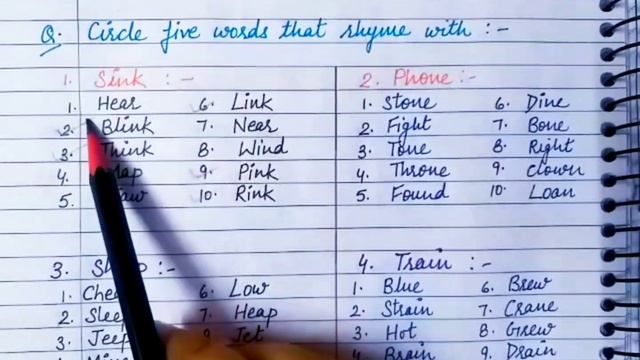 Q. Circle five words that rhyme with :-
1. Sink :-
1. Hear 6. Link
2. Blink 7. Near
3. Think 8. Wind
4. 9. Pink
5. 10. Rink
2. Phone :-
1. Stone 6. Dine
2. Fight 7. Bone
3. Tone 8. Right
4. Throne 9. Clown
5. Found 10. Loan
3. :-
1. 6. Low
2. Sleep 7. Heap
3. Jeep Jet
4. Train :-
1. Blue 6. Brew
2. Strain 7. Crane
3. Hot 8. Grew
4. Brain 9. Drain